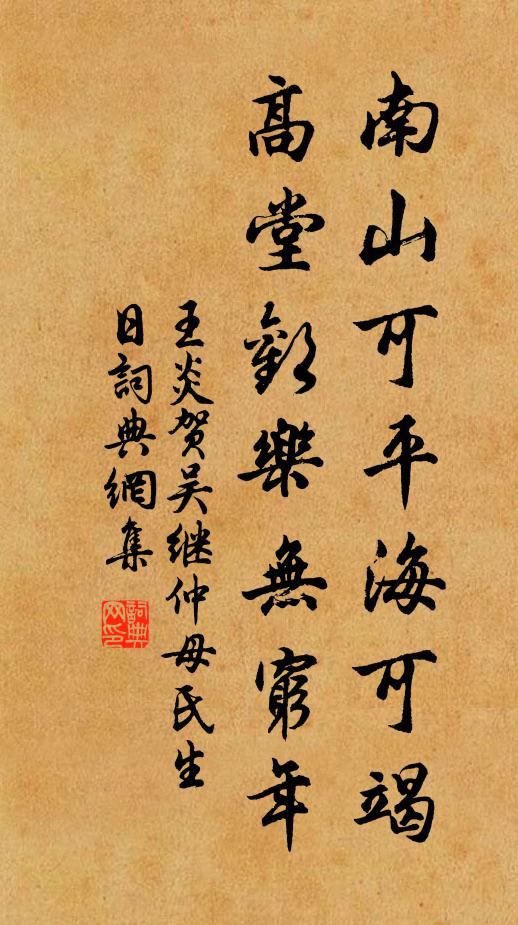 南山可平海可竭
高堂歡樂無窮年
王炎賀吴继仲母氏生
日詞典網集
詞典网印